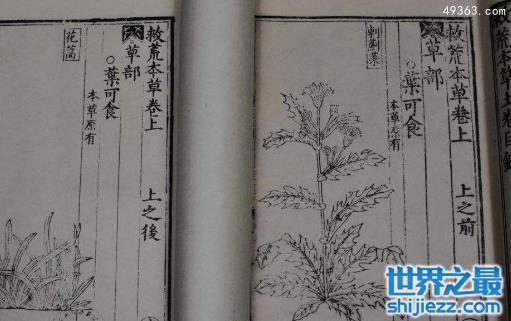 49363.com
救荒本草卷上 上之前
草部
○葉可食
本草原有
刺薊菜
救荒本草卷上 上之後
草部
○葉可食
本草原有
花蒿
世界之最
shijiezz.com